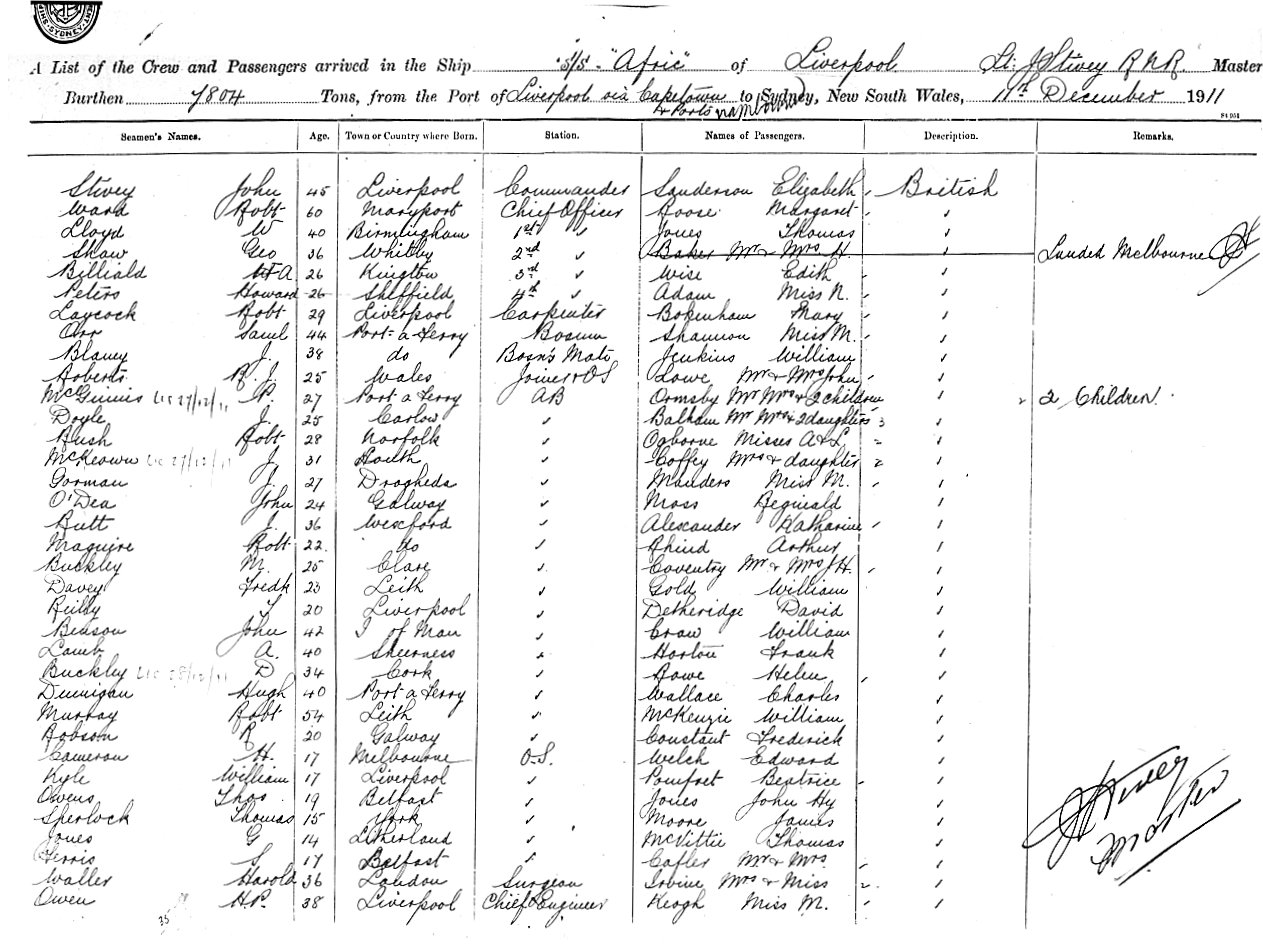 SYDNEY
A List of the Crew and Passengers arrived in the Ship S/S "Afric" of Liverpool. Lt. J Stivey R N R. Master
Burthen 7804 Tons, from the Port of Liverpool via Capetown & Ports via Melbourne to Sydney, New South Wales, 11th December 1911
Seamen's Names. Age. Town or Country where Born. Station. Names of Passengers. Description. Remarks.
Stivey John 45 Liverpool Commander Sanderson Elizabeth British
Ward Robt 60 Maryport Chief Officer Roose Margaret
Lloyd W 40 Birmingham 1st Jones Thomas
Shaw Geo 36 Whitby 2nd Baker Mr & Mrs H. Landed Melbourne
Billiald A 26 Kington 3rd Wise Edith
Peters Howard 26 Sheffield 4th Adam Miss N.
Laycock Robt 29 Liverpool Carpenter Bokenham Mary
Orr Saml 44 Port-a-Ferry Bosun Shannon Miss M.
Blaney J. 38 do Bosn's Mate Jenkins William
Roberts R. J. 25 Wales Joiner & OS Lowe Mr & Mrs John
McGinnis 27/12/11 P. 27 Port a Ferry AB Ormsby Mr Mrs & 2 children 2 Children.
Doyle J. 25 Carlow Balham Mr Mrs & 2 daughters 3
Bush Robt 28 Norfolk Ogborne Misses A & L
McKeown 27/12/11 J 31 Louth Coffey Mrs & daughter 2
Gorman J. 27 Drogheda Manders Miss M.
O'Dea John 24 Galway Moss Reginald
Butt J. 36 Wexford Alexander Katharine
Maguire Robt 22 do Rhind Arthur
Buckley M. 25 Clare Coventry Mr & Mrs J H.
Davey Fredk 23 Leith Gold William
Reilly 20 Liverpool Detheridge David
Benson John 42 I of Man Craw William
Lamb A. 40 Sheerness Horton Frank
Buckley 28/12/11 D 34 Cork Rowe Helen
Dunnigan Hugh 40 Port a Ferry Wallace Charles
Murray Robt 54 Leith McKenzie William
Robson R 20 Galway Constant Frederick
Cameron H. 17 Melbourne O.S. Welch Edward
Kyle William 17 Liverpool Pomfret Beatrice
Owens Thos 19 Belfast Jones John Hy
Sherlock Thomas 15 York Moore James
Jones G 14 Litherland McVittie Thomas
Ferris S 17 Belfast Cafler Mr & Mrs
Waller Harold 36 London Surgeon Irvine Mrs & Miss 2
Owen H.P. 38 Liverpool Chief Engineer Keogh Miss M.
J Stivey
Master
35